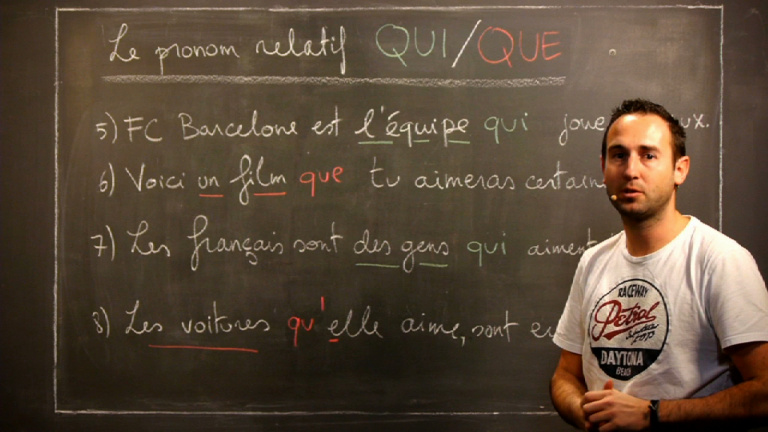 Le pronom relatif QUI/QUE
5) FC Barcelone est l'équipe qui joue
6) Voici un film que tu aimeras
7) Les français sont des gens qui
8) Les voitures qu'elle aime, sont
RACEWAY
Petrol
DAYTONA
BEACH